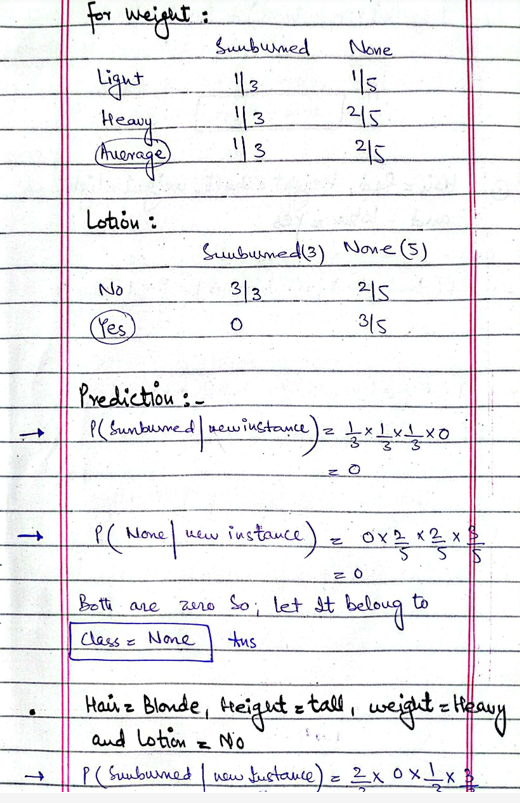 for weight :
Sunburned None
Light 1/3 1/5
Heavy 1/3 2/5
Average 1/3 2/5
Lotion :
Sunburned(3) None (5)
No 3/3 2/5
Yes 0 3/5
Prediction :-
→ P(Sunburned | new instance) = 1/3 × 1/3 × 1/3 × 0
= 0
→ P( None | new instance) = 0 × 2/5 × 2/5 × 3/5
= 0
Both are zero So; let It belong to
Class = None Ans
• Hair = Blonde, Height = tall, weight = Heavy
and Lotion = No
→ P(Sunburned | new Instance) = 2/3 × 0 × 1/3 × 3